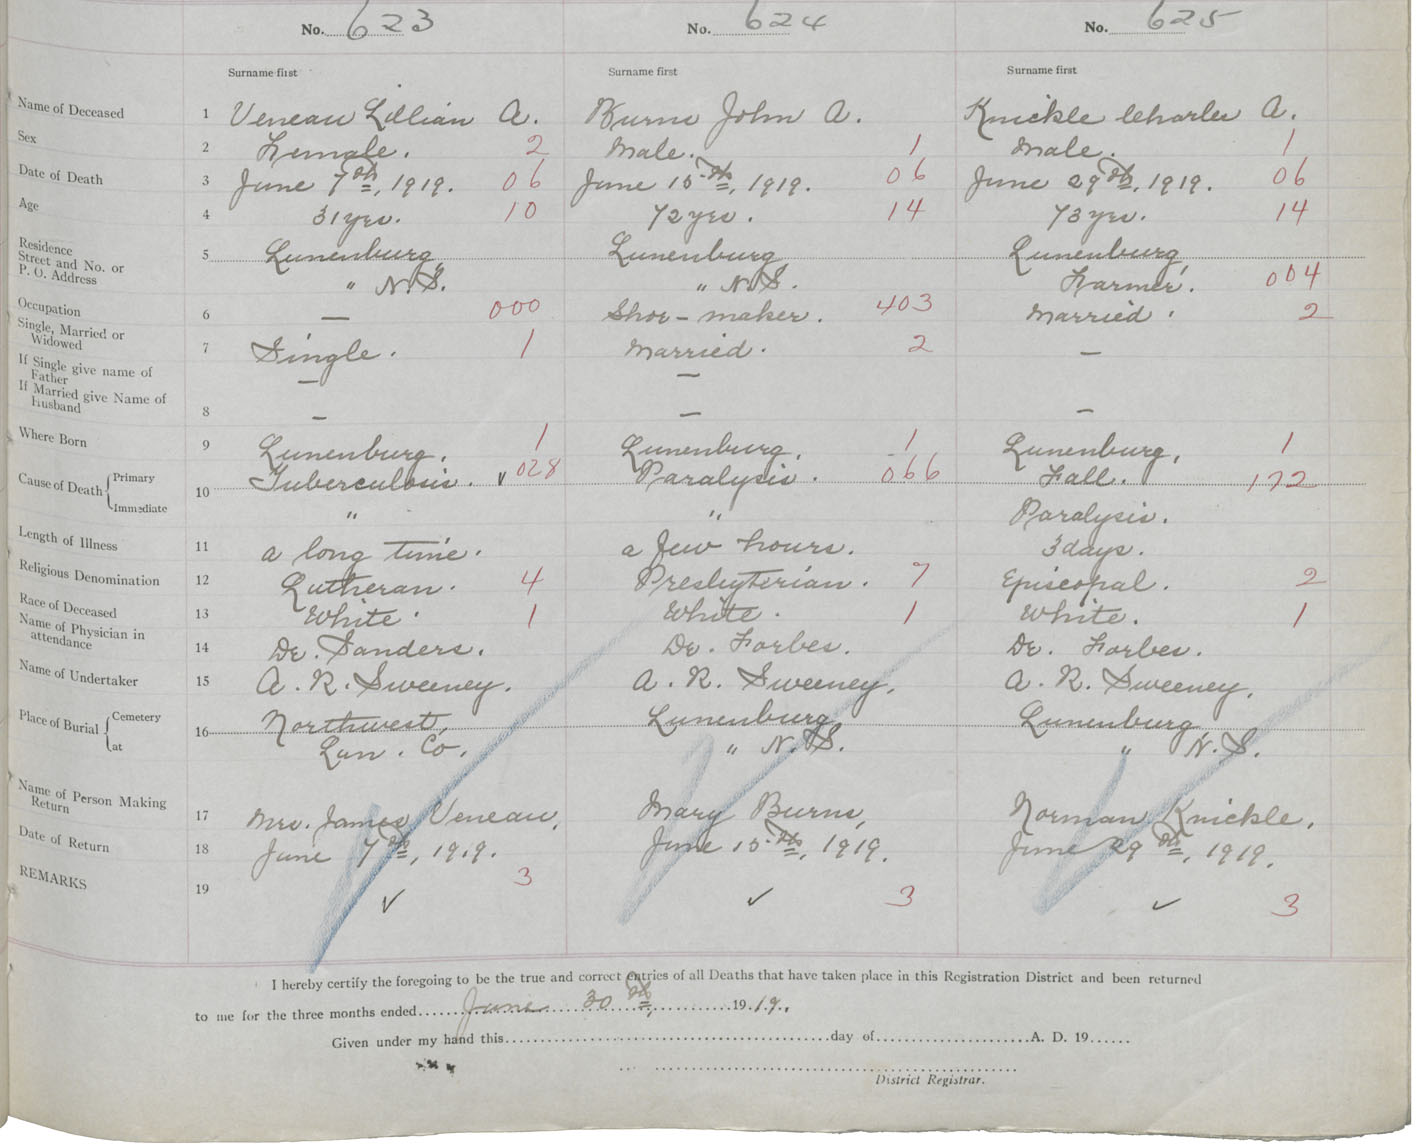 No. 623 No. 624 No. 625
Surname first Surname first Surname first
Name of Deceased 1 Veneau Lillian A. Burns John A. Knickle Charles A.
Sex 2 Female. 2 Male. 1 Male. 1
Date of Death 3 June 7th, 1919. 06 June 15th, 1919. 06 June 29th, 1919. 06
Age 4 31 yrs. 10 72 yrs. 14 73 yrs. 14
Residence
Street and No. or 5 Lunenburg, Lunenburg, Lunenburg,
P. O. Address " N.S. " N.S. Farmer. 004
Occupation 6 — 000 Shoe-maker. 403 Married. 2
Single, Married or
Widowed 7 Single. 1 Married. 2 —
If Single give name of
Father — —
If Married give Name of
Husband 8 — — —
Where Born 9 Lunenburg. 1 Lunenburg. 1 Lunenburg. 1
Cause of Death { Primary 10 Tuberculosis. ✓ 028 Paralysis. 066 Fall. 172
Immediate " " Paralysis.
Length of Illness 11 a long time. a few hours. 3 days.
Religious Denomination 12 Lutheran. 4 Presbyterian. 7 Episcopal. 2
Race of Deceased 13 White. 1 White. 1 White. 1
Name of Physician in
attendance 14 Dr. Sanders. Dr. Forbes. Dr. Forbes.
Name of Undertaker 15 A. R. Sweeney. A. R. Sweeney, A. R. Sweeney,
Place of Burial { Cemetery 16 Northwest, Lunenburg, Lunenburg,
at Lun. Co. " N. S. " N. S.
Name of Person Making
Return 17 Mrs. James Veneau, Mary Burns, Norman Knickle.
Date of Return 18 June 7th, 1919. June 15th, 1919. June 29th, 1919.
REMARKS 19 ✓ 3 ✓ 3 ✓ 3
I hereby certify the foregoing to be the true and correct entries of all Deaths that have taken place in this Registration District and been returned
to me for the three months ended June 30th, 1919.
Given under my hand this day of A. D. 19
District Registrar.